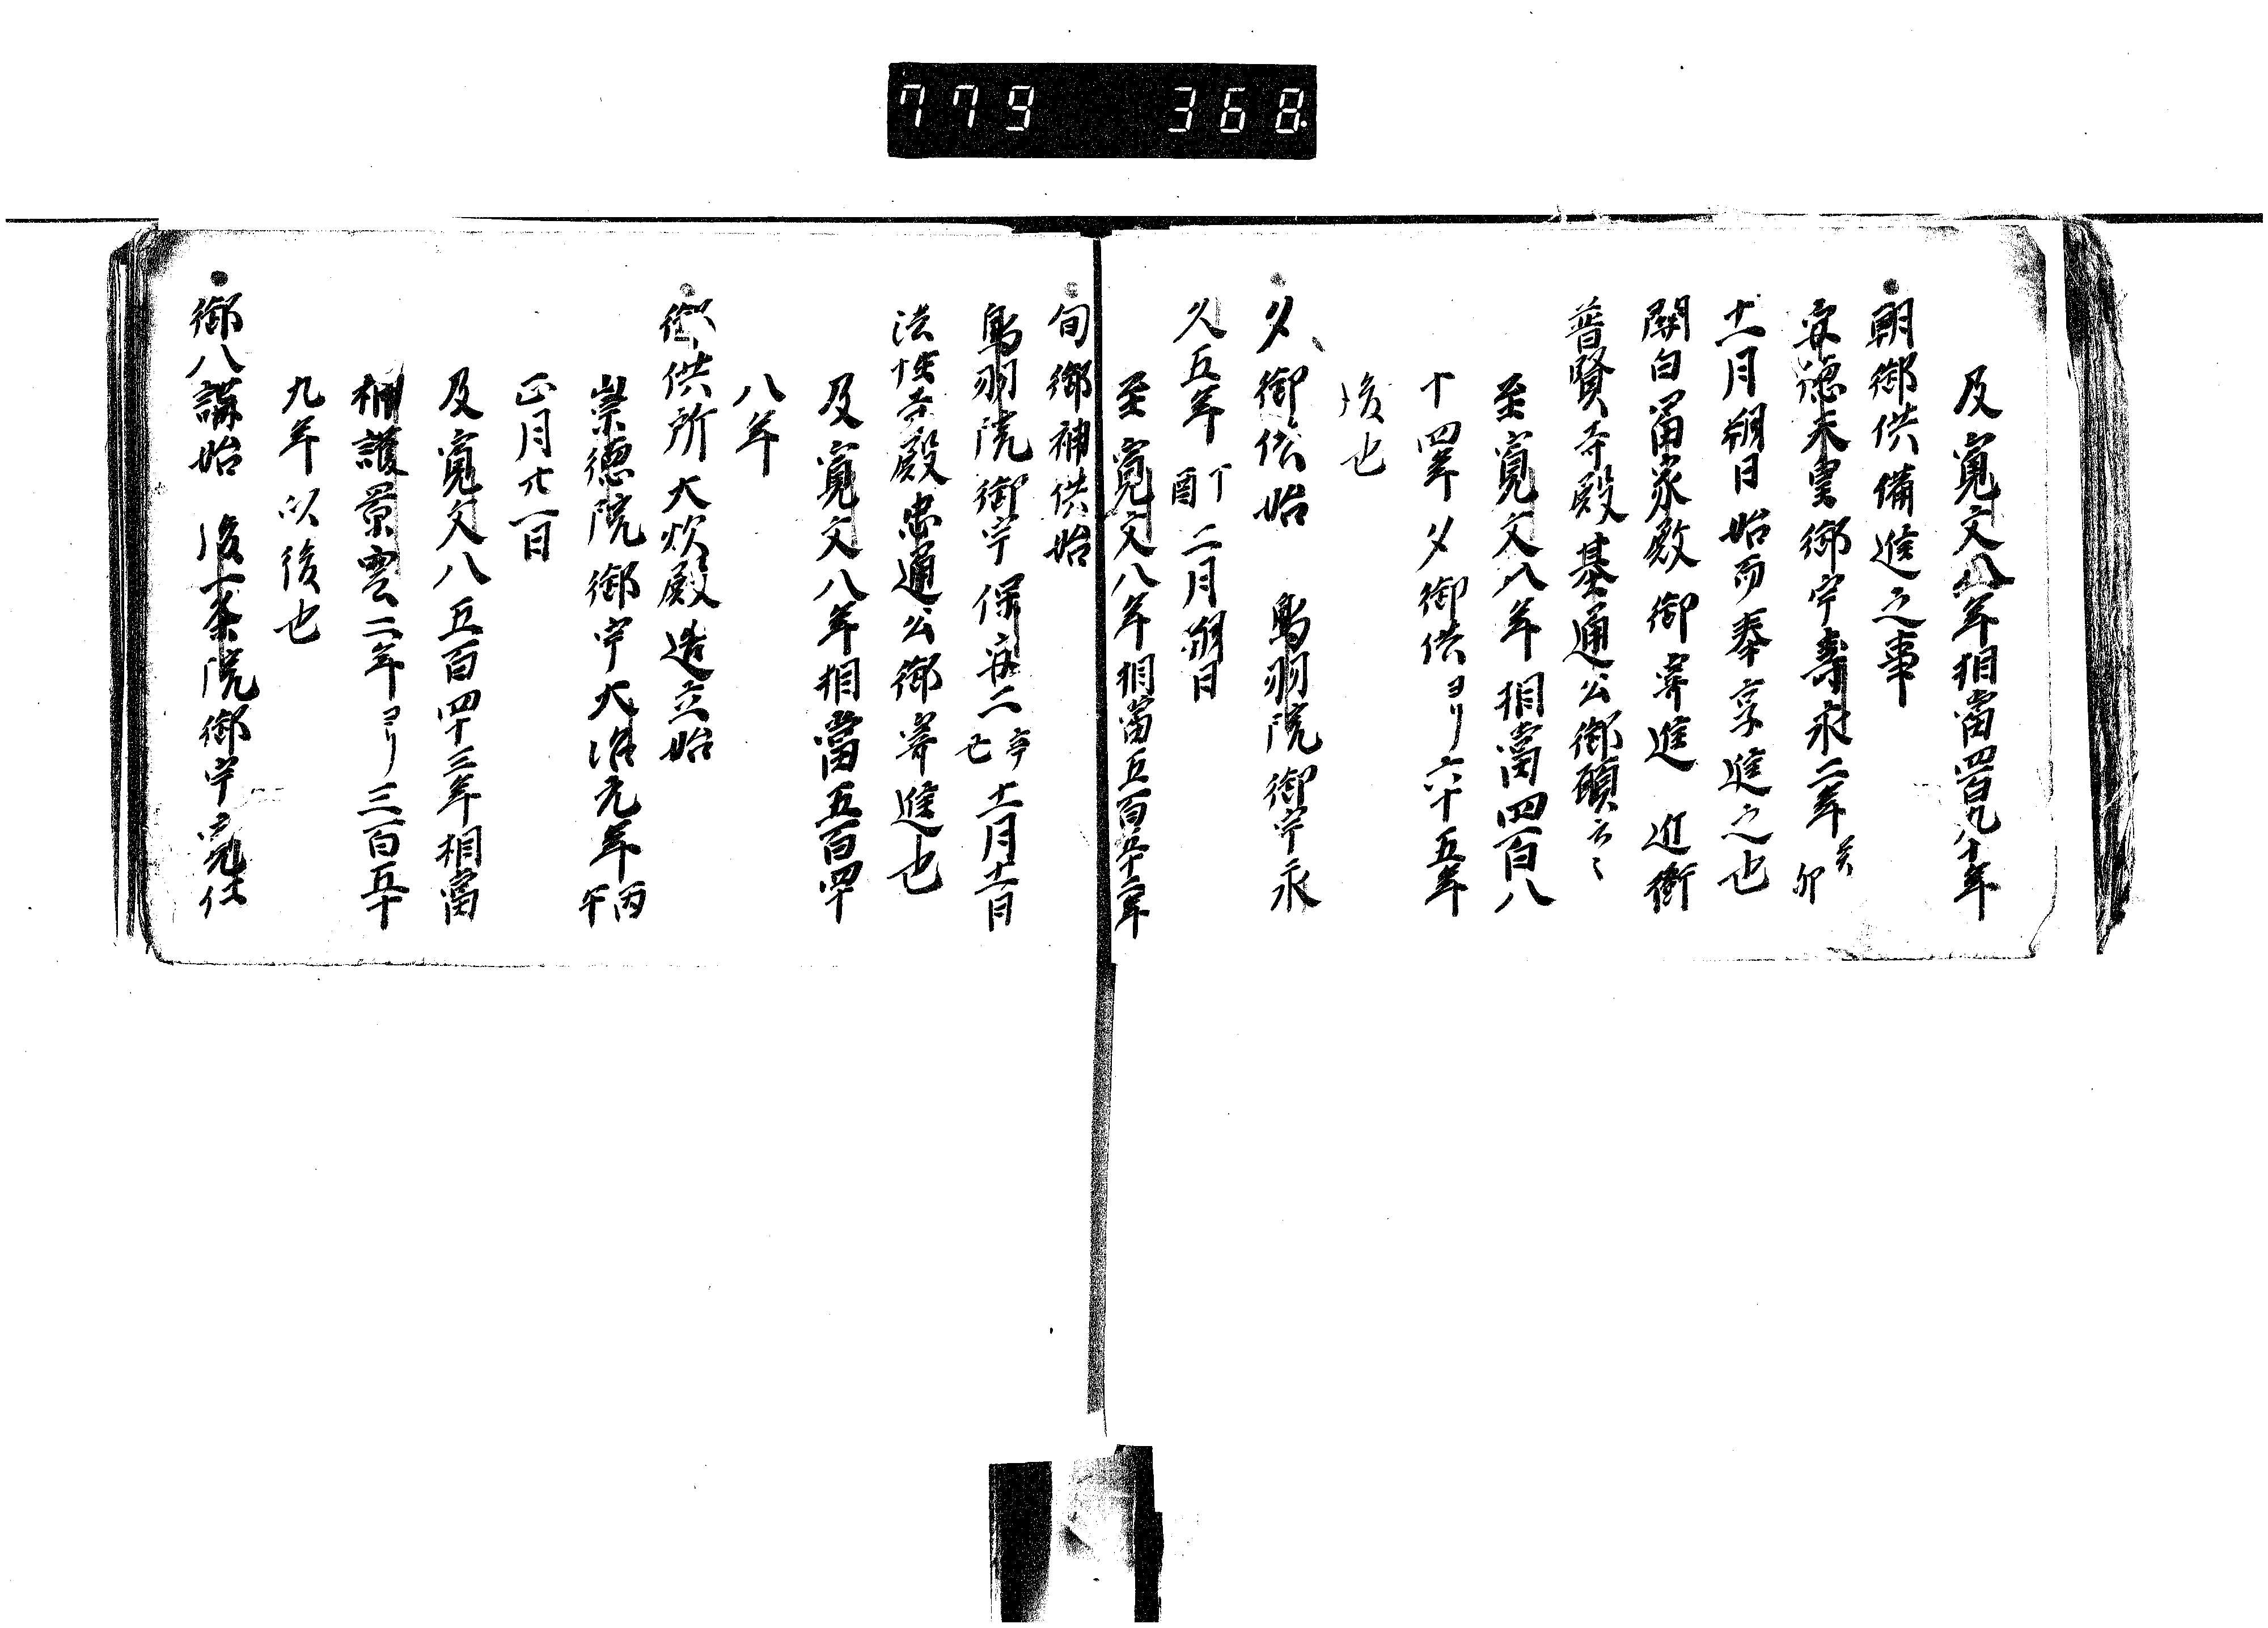 779 368.
及寛文八年相當四百九十年
朝御供備進之事
安德天皇御宇壽永二年癸卯
十一月朔日始而奉享進之也
関白當家殿御寄進近衛
普賢寺殿基通公御願云々
至寛文八年相當四百八
十四年夕御供ヨリ六十五年
後也
夕御供始 鳥羽院御宇永
久五年丁酉二月朔日
至寛文八年相當五百五十二年
旬御神供始
鳥羽院御宇保安二辛七十一月十一日
法性寺殿忠通公御寄進也
及寛文八年相當五百四十
八年
御供所大炊殿造立始
崇德院御宇大治元年丙午
正月廿一日
及寛文八五百四十三年相當
神護景雲二年ヨリ三百五十
九年以後也
御八講始 後一条院御宇寛仁